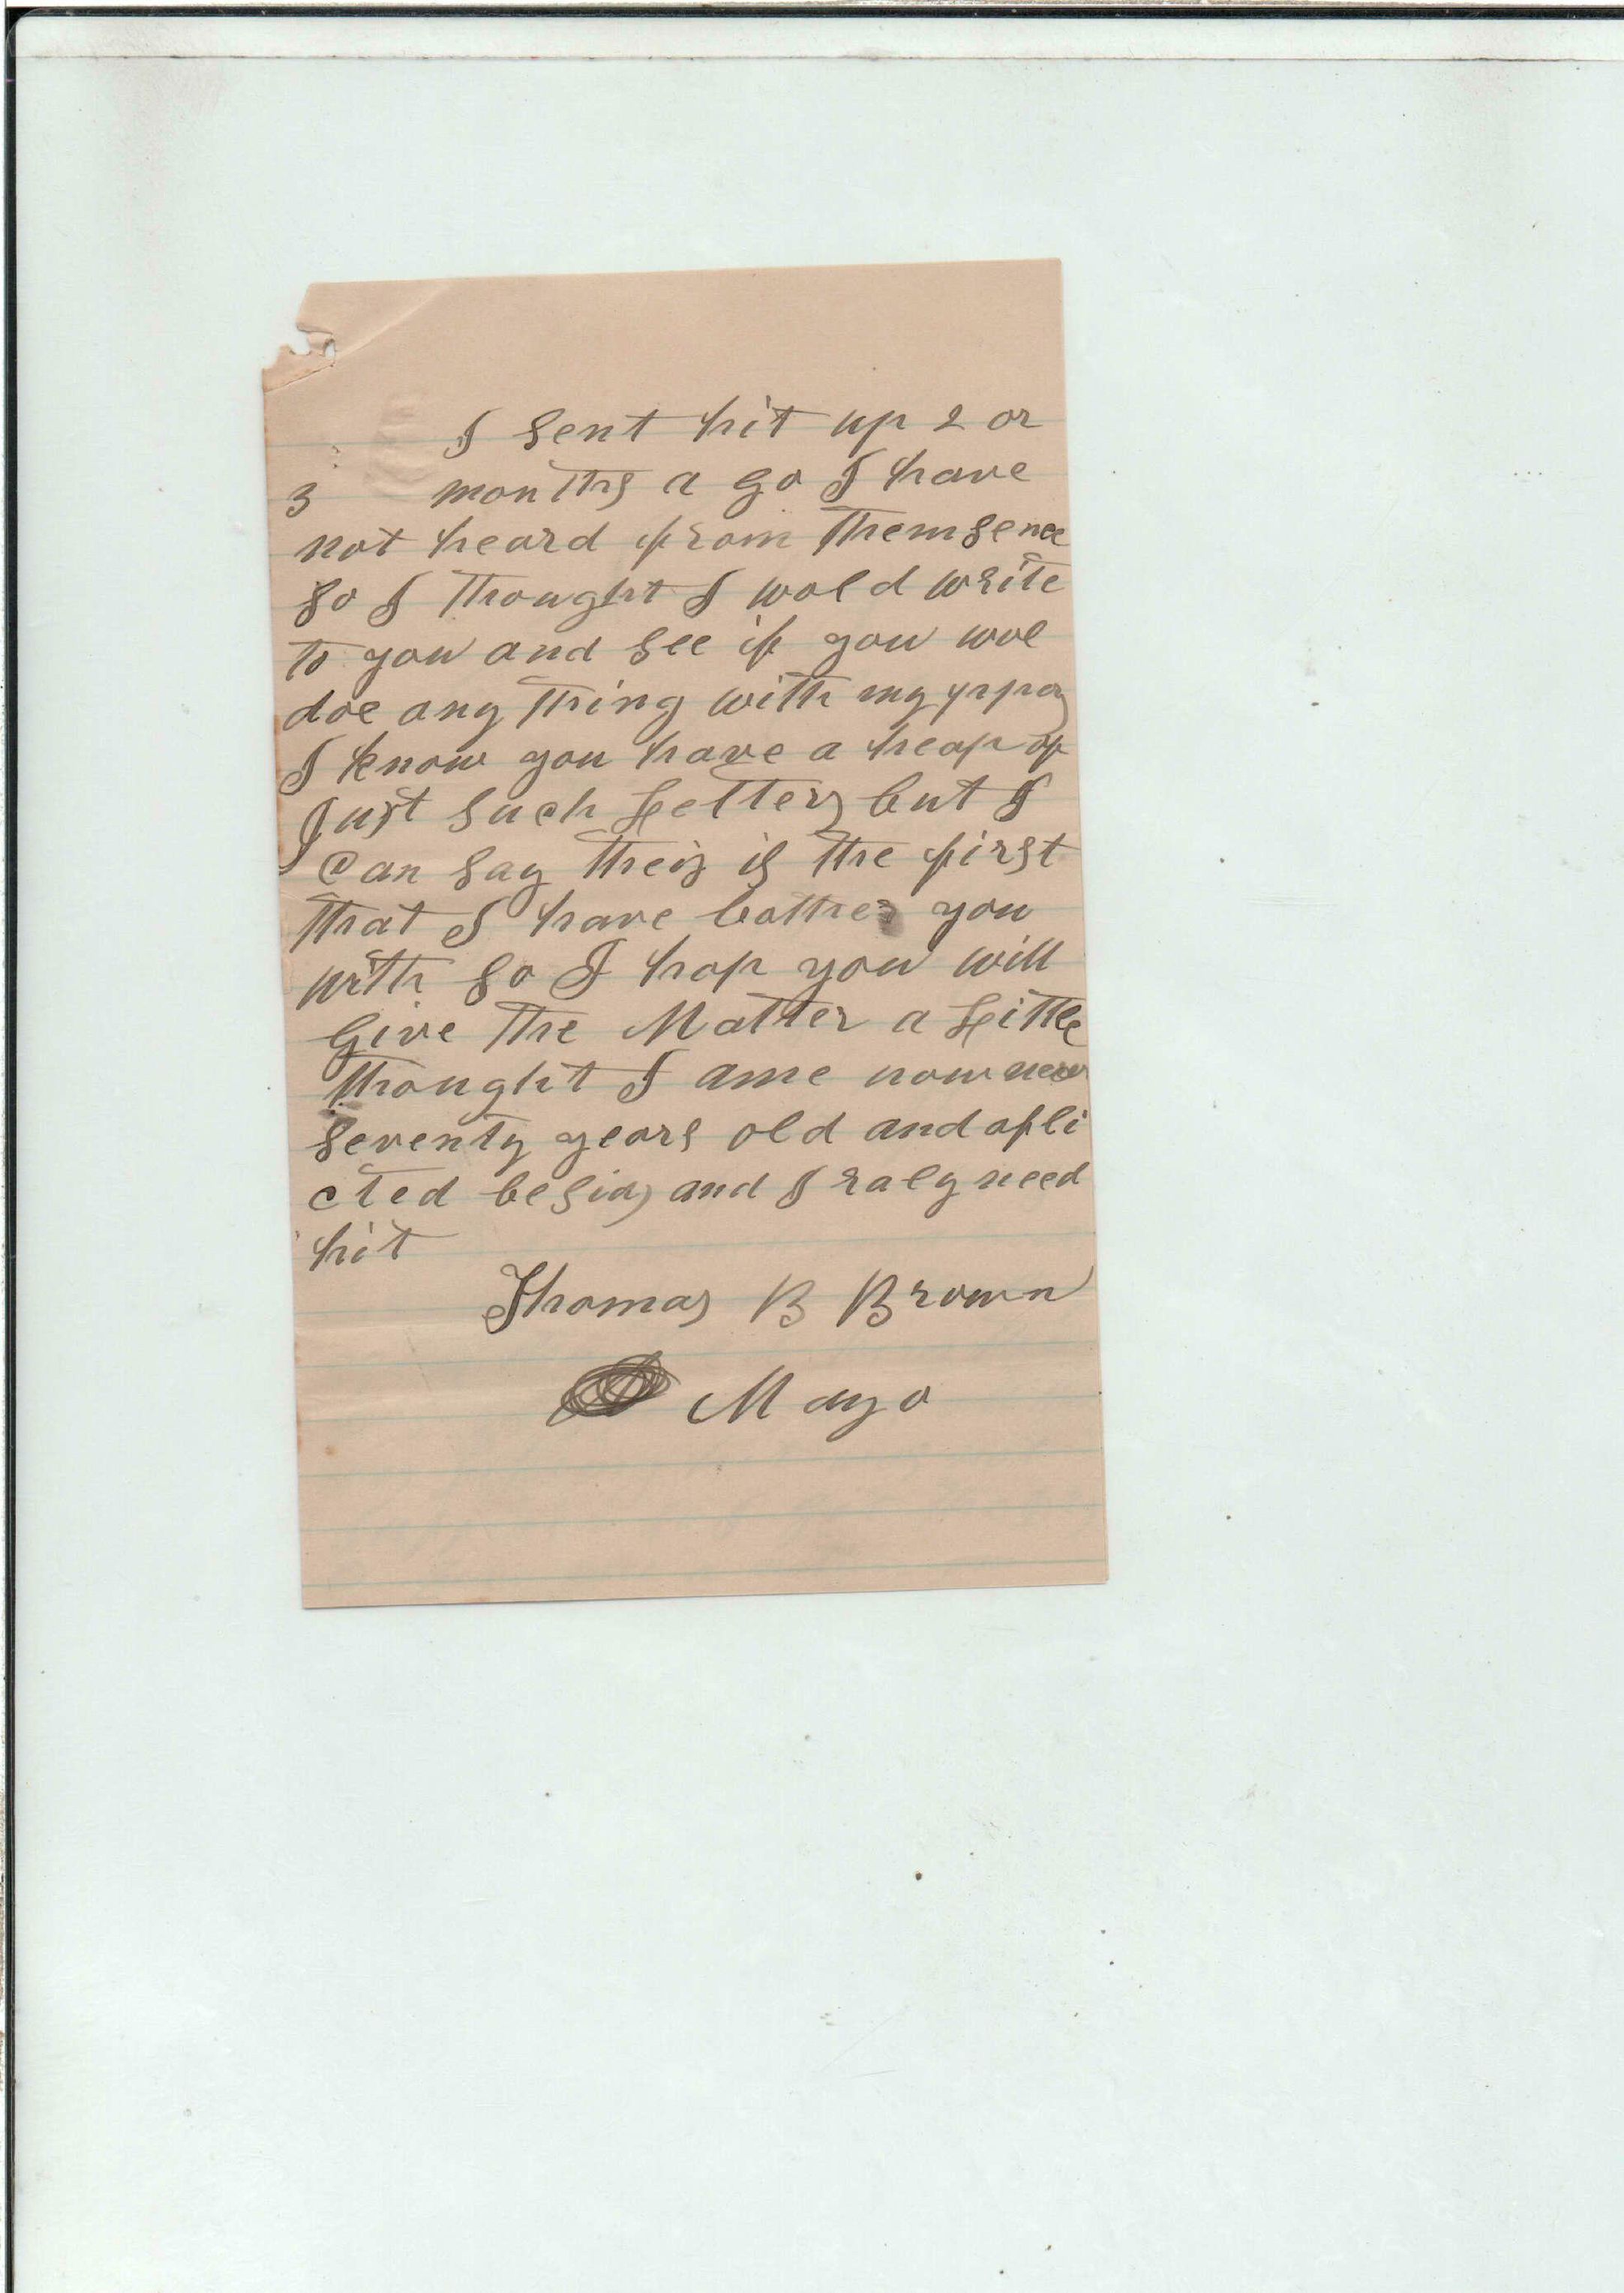 I sent hit up 2 or
3 months a go I have
not heard from them sence
so I thought I wold write
to you and see if you wol
doe any thing with my
I know you have a heap of
Just such Letters but I
can say theis is the first
that I have bother you
with so I hop you will
Give the Matter a Little
thought I ame now near
seventy years old and afli
cted besids and I raly need
hit
Thomas B Brown
Mayo